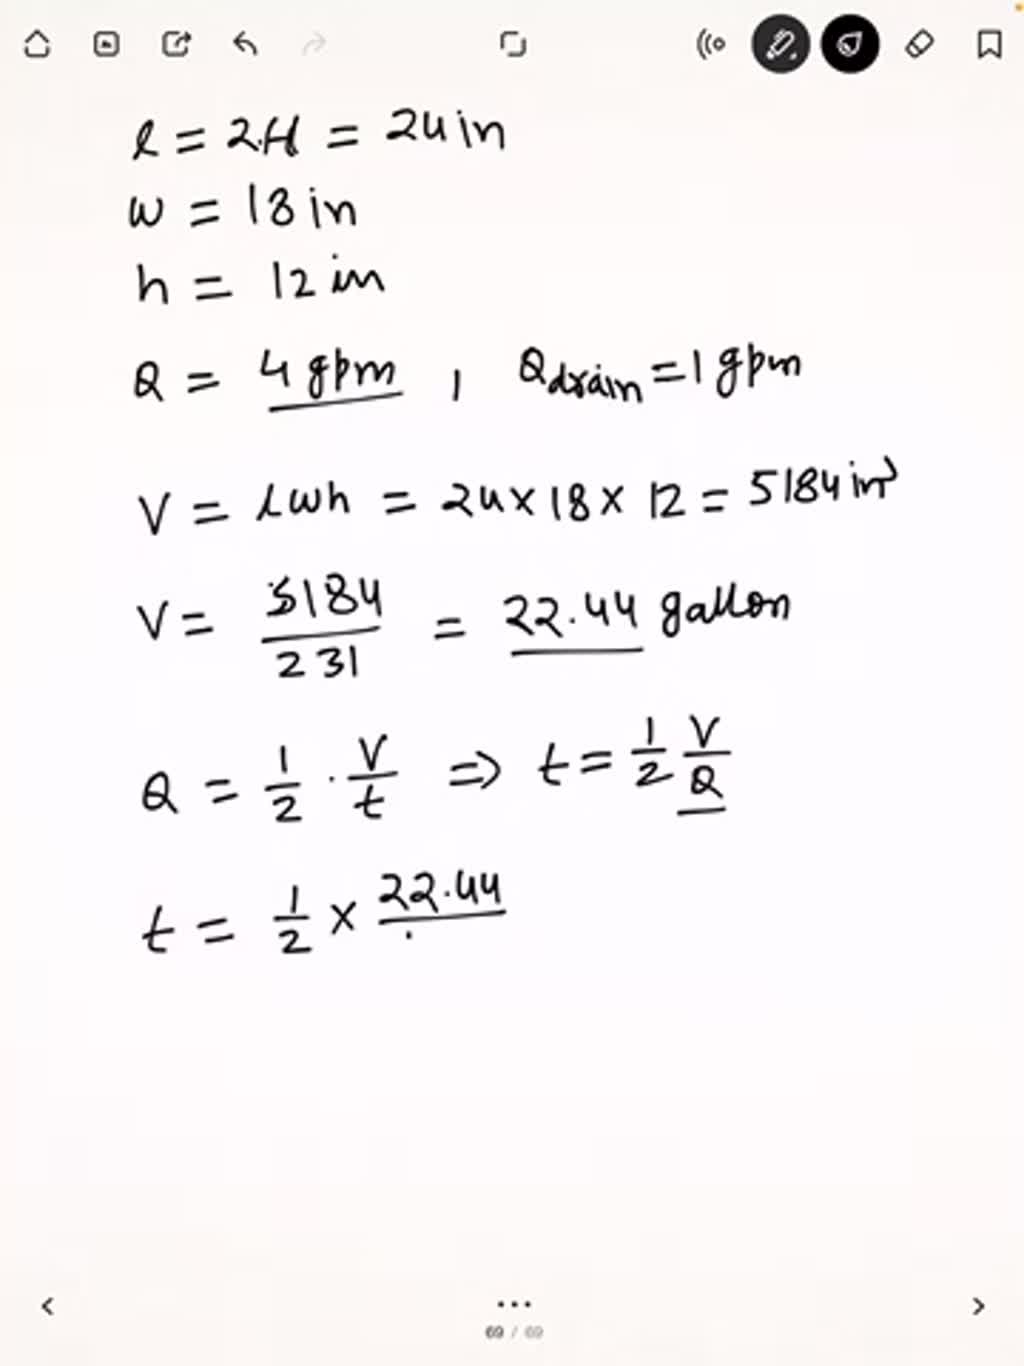 l = 2H = 24 in
w = 18 in
h = 12 in
Q = 4 gpm , Qdrain = 1 gpm
V = lwh = 24 x 18 x 12 = 5184 in³
V = 5184/231 = 22.44 gallon
Q = 1/2 · V/t => t = 1/2 V/Q
t = 1/2 x 22.44
69 / 69